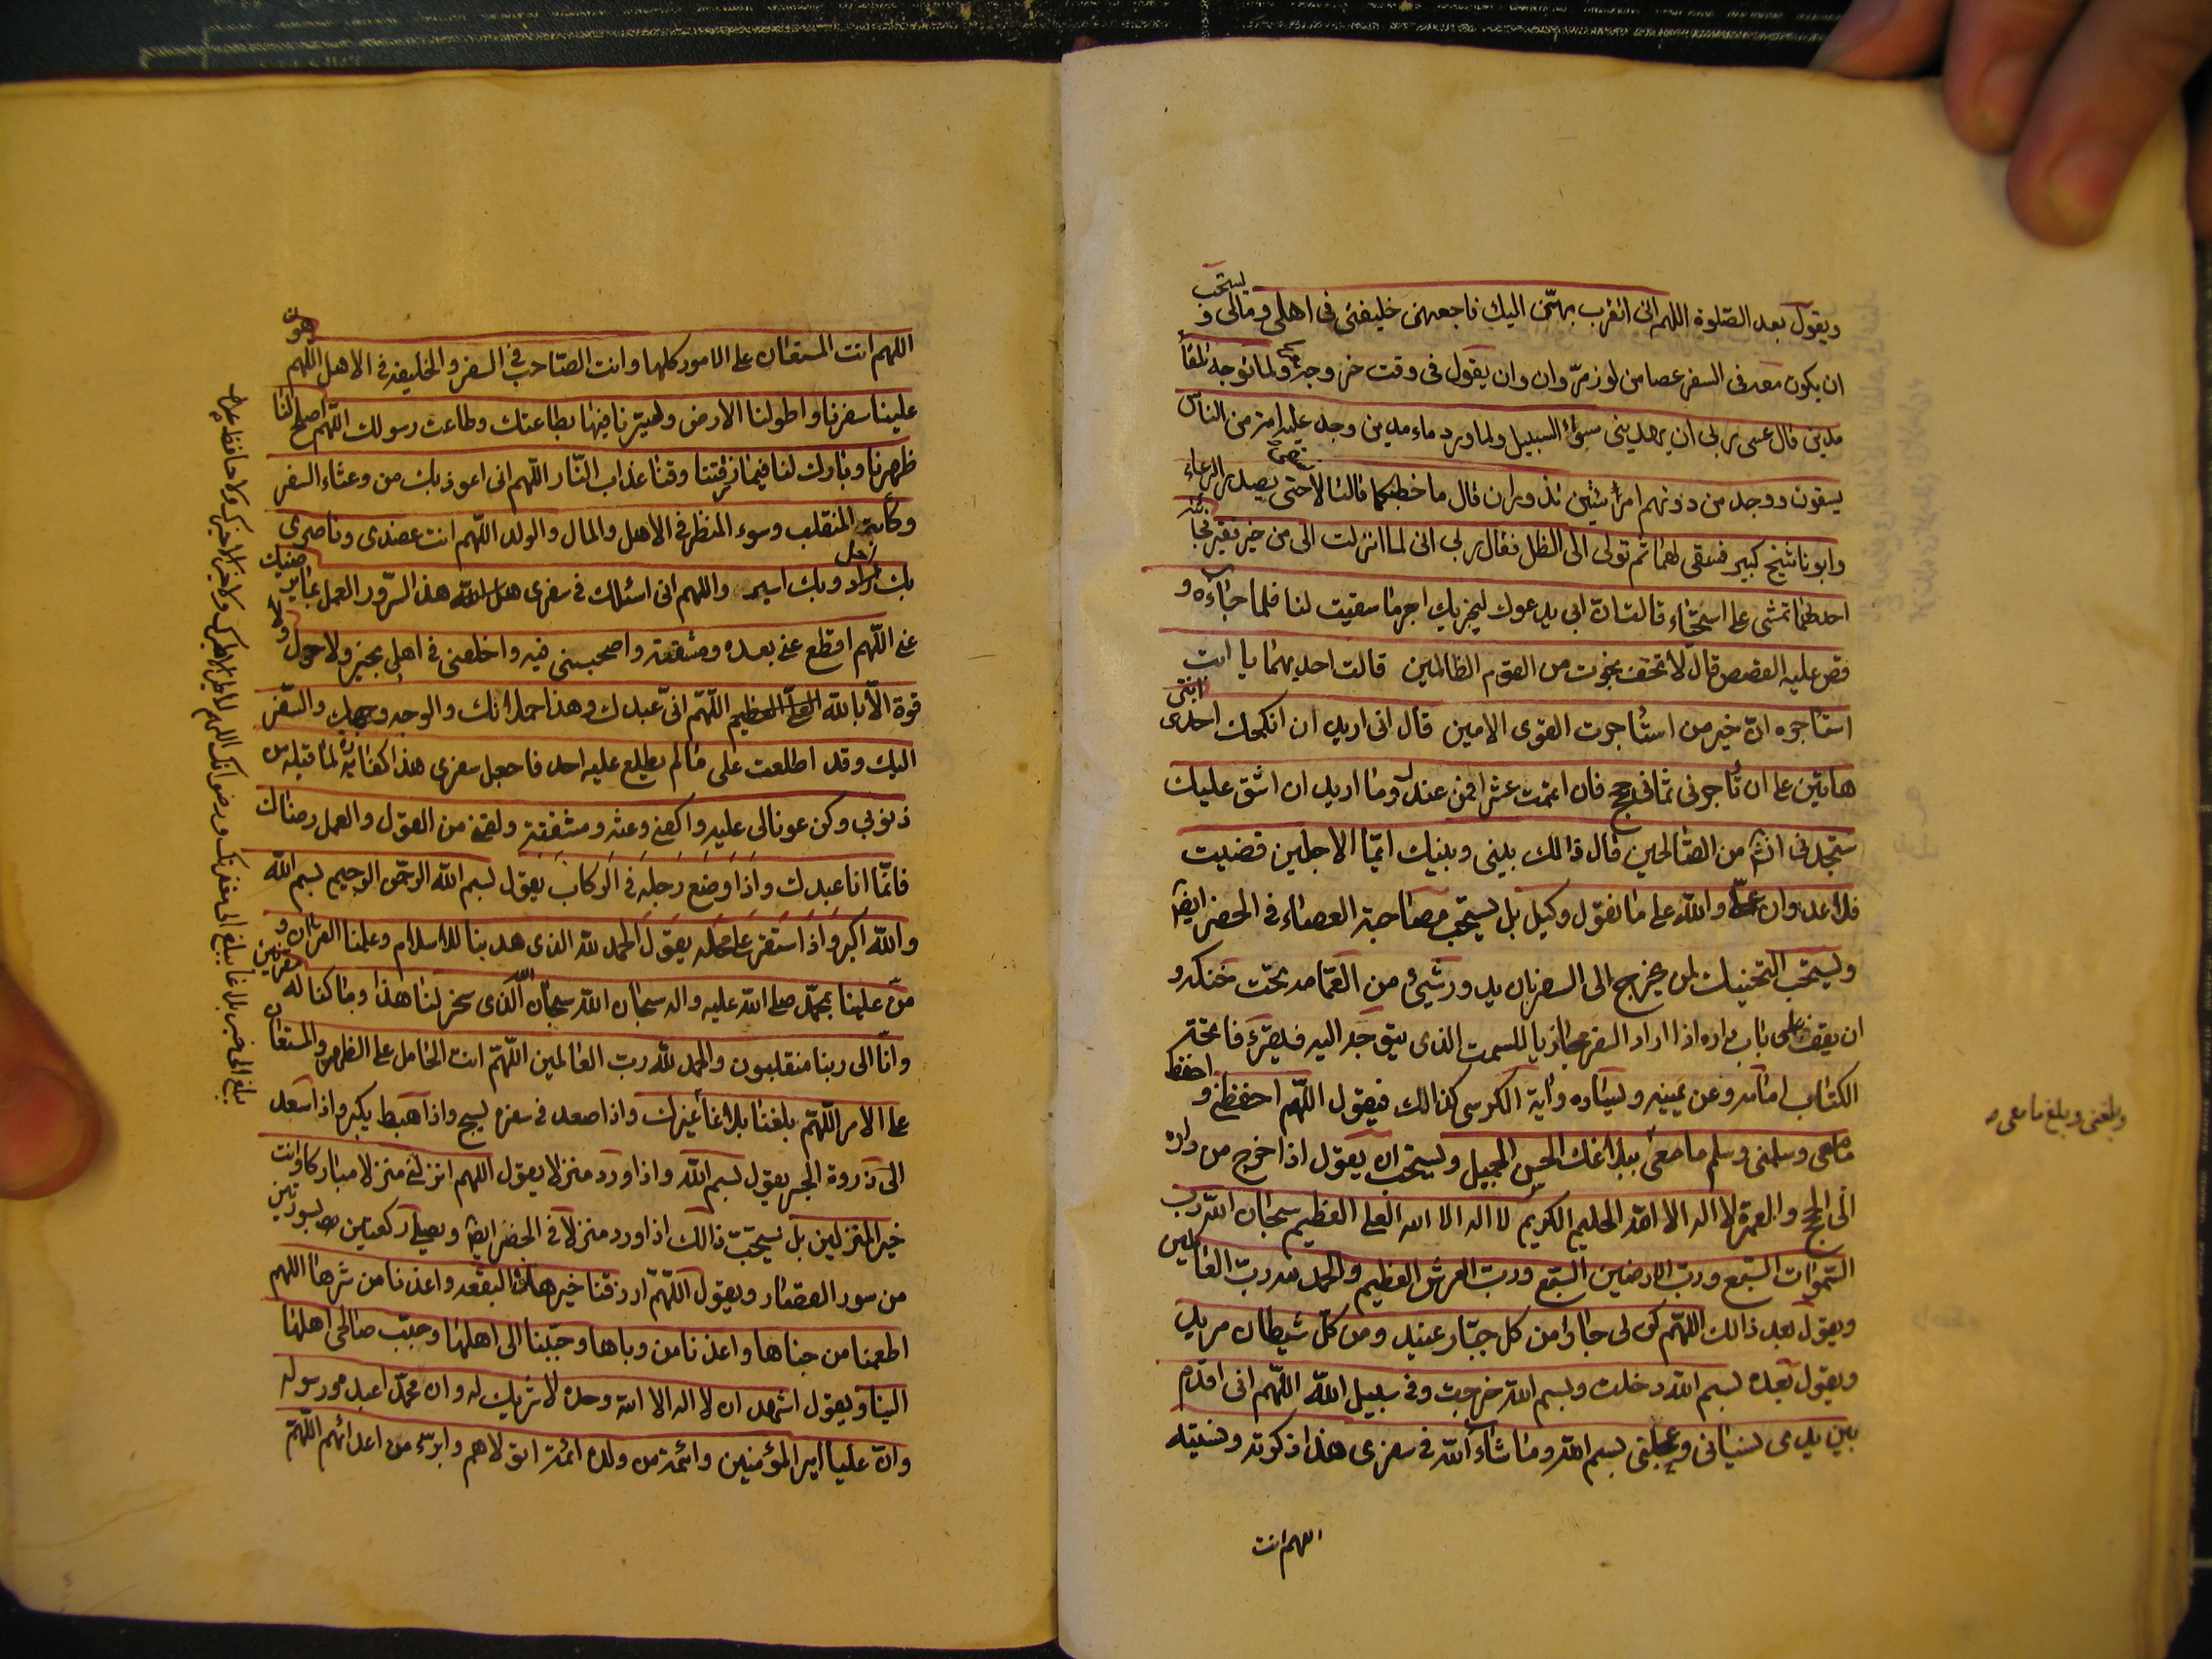 ويقول بعد الصّلوة اللهم انى اتقرب بهنّ اليك فاجعهنّ خليفتى فى اهلى ومالى و يستحب
ان يكون معه فى السفر عصا من لوز مرّ وان يقول فى وقت خروجه ولما توجه تلقاء
مدين قال عسى ربى ان يهدينى سواء السبيل ولما ورد ماء مدين وجد عليه امة من الناس
يسقون ووجد من دونهم امرأتين تذودان قال ما خطبكما قالتا لا نسقى حتى يصدر الرعاء
وابونا شيخ كبير فسقى لهما ثم تولى الى الظل فقال ربى انى لما انزلت الى من خير فقير فجائته
احدهما تمشى على استحياء قالت انّ ابى يدعوك ليجزيك اجر ما سقيت لنا فلما جاءه و
قص عليه القصص قال لا تخف نجوت من القوم الظالمين قالت احديهما يا ابت
استاجره انّ خير من استأجرت القوى الامين قال انى اريد ان انكحك احدى ابنتى
هاتين على ان تأجرنى ثمانى حجج فان اتممت عشرا فمن عندك وما اريد ان اشق عليك
ستجدنى انشاء من الصالحين قال ذالك بينى وبينك ايّما الاجلين قضيت
فلا عدوان علىّ والله على ما نقول وكيل بل يستحب مصاحبة العصاء فى الحضر ايضا
ويستحب التحنيك لمن يخرج الى السفر بان يدور شيئ من العمامه تحت حنكه و
ان يقف على باب داره اذا اراد السفر محاذيا للسمت الذى يتوجه اليه فيقرء فاتحة
الكتاب امامه وعن يمينه ويساره واية الكرسى كذالك فيقول اللّهم احفظنى و احفظ
مامعى وسلمنى وسلم ما معى ببلاغك الحسن الجميل ويستحب ان يقول اذا خرج من داره
الى الحج والعمرة لا اله الا الله الحليم الكريم لا اله الا الله العلى العظيم سبحان الله رب
السموات السّبع وربّ الارضين السّبع وربّ العرش العظيم والحمد لله ربّ العالمين
ويقول بعد ذالك اللّهم كن لى جارا من كل جبّار عنيد ومن كلّ شيطان مريد
ويقول بعده بسم الله دخلت وبسم الله خرجت وفى سبيل الله اللّهم انى اقدم
بين يدى نسيانى وعجلتى بسم الله وما شاء الله فى سفرى هذا ذكرته ونسيته
اللهم انت
وبلغنى وبلغ ما معى
اللهم انت المستعان على الامور كلها وانت الصّاحب فى السفر والخليفة فى الاهل اللّهم هون
علينا سفرنا واطو لنا الارض وسيّرنا فيها بطاعتك وطاعت رسولك اللّهم اصلح لنا
ظهرنا وبارك لنا فيما رزقتنا وقنا عذاب النّار اللّهم انى اعوذ بك من وعثاء السفر
وكأبة المنقلب وسوء المنظر فى الاهل والمال والولد اللّهم انت عضدى وناصرى
بك احل وبك اسير واللهم انى اسئلك فى سفرى هذا السّرور العمل بما يرضيك
عنى اللّهم اقطع عنى بعده ومشقته واصحبنى فيه واخلفنى فى اهلى بخير ولا حول و
قوة الّا بالله العلىّ العظيم اللّهم انّى عبدك وهذا حملانك والوجه وجهك والسّفر
اليك وقد اطلعت على ما لم يطلع عليه احد فاجعل سفرى هذا كفارة لما قبله من
ذنوبى وكن عونا لى عليه واكفنى وعثه ومشقته ولقنى من القول والعمل رضاك
فانّما انا عبدك واذا وضع رجله فى الركاب يقول بسم الله الرحمن الرحيم بسم الله
والله اكبر واذا استقر على محله يقول الحمد لله الذى هدينا للاسلام وعلمنا القران و
منّ علينا بمحمّد صلى الله عليه واله سبحان الله سبحان الّذى سخر لنا هذا وما كنا له مقرنين
وانّا الى ربنا منقلبون والحمد لله رب العالمين اللّهم انت الحامل على الظهر والمستعان
على الامر اللّهم بلغنا بلاغا واذا صعد فى سفره يسبح واذا هبط يكبر واذا سعد
الى ذروة الجسر يقول بسم الله واذا ورد منزلا يقول اللهم انزلنى منزلا مباركا وانت
خير المنزلين بل يستحبّ ذالك اذا ورد منزلا فى الحضر ايضا ويصلى ركعتين بسورتين
من سور القصار ويقول اللّهمّ ارزقنا خير هذه البقعه واعذنا من شرها اللهم
اطعمنا من جناها واعذنا من وباها وحبّبنا الى اهلها وحبّب صالحى اهلها
الينا ويقول اشهد ان لا اله الا الله وحده لا شريك له وان محمّدا عبده ورسوله
وانّ عليا امير المؤمنين وائمة من ولده ائمة اتولاهم وابرء من اعدائهم اللّهمّ